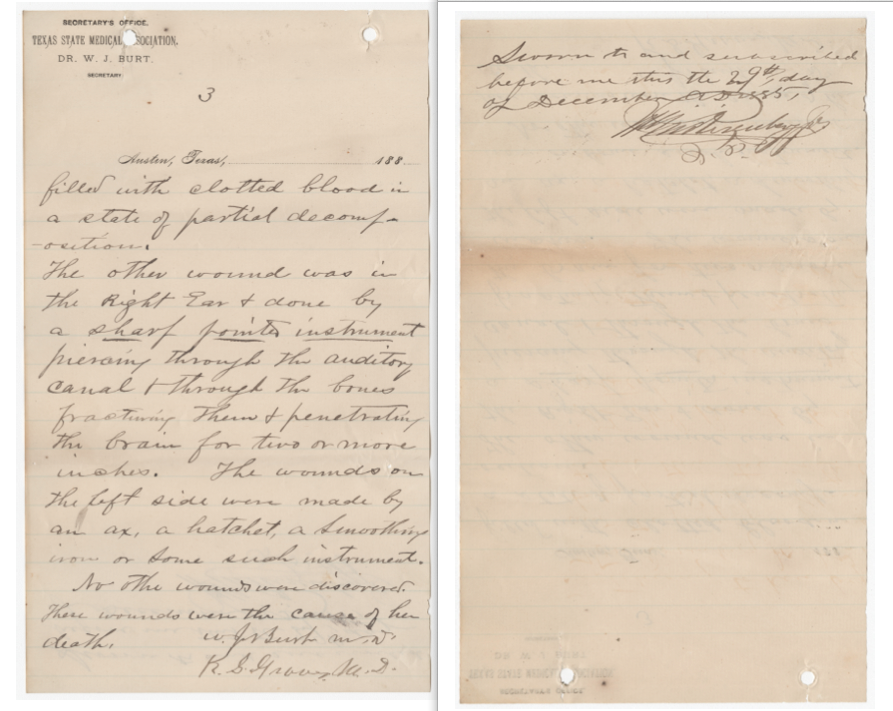 SECRETARY'S OFFICE,
TEXAS STATE MEDICAL ASSOCIATION.
DR. W. J. BURT.
SECRETARY
3
Austin, Texas, 188
filled with clotted blood in
a state of partial decomp-
-osition.
The other wound was in
the Right Ear & done by
a sharp pointed instrument
piercing through the auditory
canal & through the bones
fracturing them & penetrating
the brain for two or more
inches. The wounds on
the left side were made by
an ax, a hatchet, a smoothing
iron or some such instrument.
No othe wounds were discovered.
These wounds were the cause of her
death. W. J. Burt M.D.
M.D.
Sworn to and subscribed
before me this the 29th day
of December AD 1885,